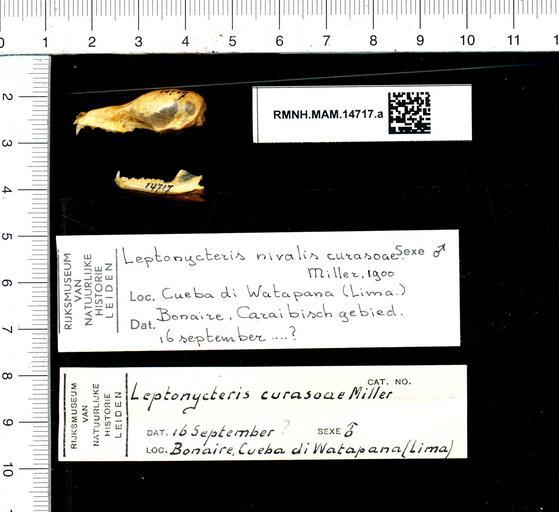 0 1 2 3 4 5 6 7 8 9 10 11
2
3
4
5
6
7
8
9
10
14717
RMNH.MAM.14717.a
14717
RIJKSMUSEUM
VAN
NATUURLIJKE
HISTORIE
LEIDEN
Leptonycteris nivalis curasoae Sexe ♂
Miller, 1900
Loc. Cueba di Watapana (Lima.)
Bonaire, Caraibisch gebied.
Dat. 16 september ....?
RIJKSMUSEUM
VAN
NATUURLIJKE
HISTORIE
LEIDEN
CAT. NO.
Leptonycteris curasoae Miller
DAT. 16 September ? SEXE ♂
LOC. Bonaire, Cueba di Watapana (Lima)